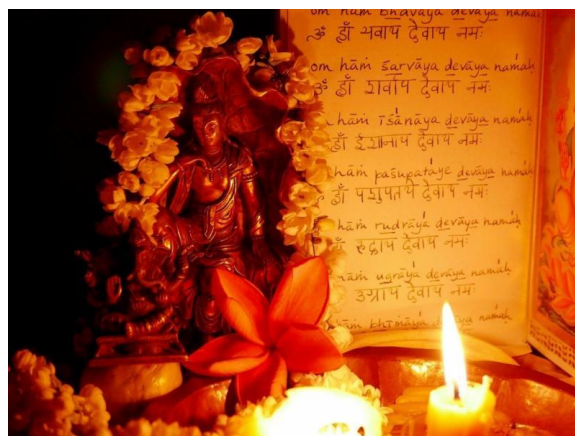 om hāṁ bhavāya devāya namaḥ
ॐ हाँ भवाय देवाय नमः
om hāṁ śarvāya devāya namaḥ
ॐ हाँ शर्वाय देवाय नमः
hāṁ īśānāya devāya namaḥ
हाँ ईशानाय देवाय नमः
hāṁ paśupataye devāya namaḥ
हाँ पशुपतये देवाय नमः
hāṁ rudrāya devāya namaḥ
रुद्राय देवाय नमः
hāṁ ugrāya devāya namaḥ
उग्राय देवाय नमः
hāṁ bhīmāya devāya namaḥ